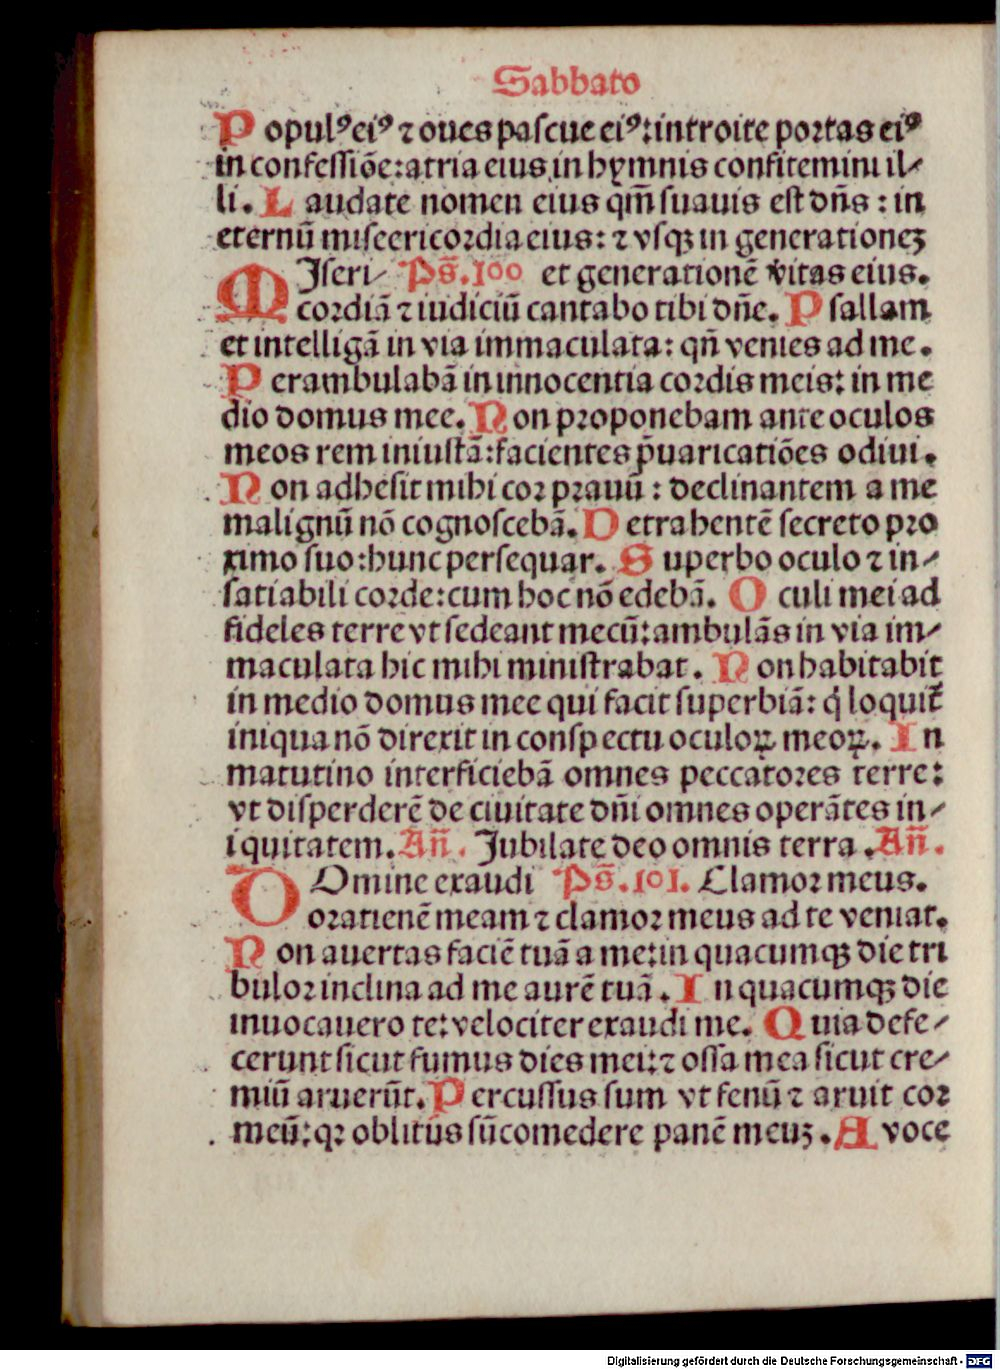 Sabbato
Populꝰ eiꝰ ⁊ oues paſcue eiꝰ: introite portas eiꝰ
in confeſſiõe: atria eius in hymnis confitemini il⸗
li. Laudate nomen eius qm̄ ſuauis eſt dn̄s: in
eternū miſericordia eius: ⁊ vſqꝫ in generationeꝫ
MIſeri⸗ Ps̄. 100 et generationē v̓itas eius.
cordiā ⁊ iudiciū cantabo tibi dn̄e. Pſallam
et intelligā in via immaculata: qn̄ venies ad me.
Perambulabā in innocentia cordis meis: in me
dio domus mee. Non proponebam ante oculos
meos rem iniuſtā: facientes p̄uaricatiões odiui.
Non adheſit mihi cor prauū: declinantem a me
malignū nō cognoſcebā. Detrahentē ſecreto pro
ximo ſuo: hunc perſequar. Superbo oculo ⁊ in⸗
ſatiabili corde: cum hoc nō edebā. Oculi mei ad
fideles terre vt ſedeant mecū: ambulās in via im⸗
maculata hic mihi miniſtrabat. Non habitabit
in medio domus mee qui facit ſuperbiā: q̇ loquit᷑
iniqua nō direxit in conſpectu oculoꝝ meoꝝ. In
matutino interficiebā omnes peccatores terre:
vt diſperderē de ciuitate dn̄i omnes operātes in⸗
iquitatem. An̄. Jubilate deo omnis terra. An̄.
DOmine exaudi Ps̄. 101. Clamor meus.
orationē meam ⁊ clamor meus ad te veniat.
Non auertas faciē tuā a me: in quacumqꝫ die tri
bulor inclina ad me aurē tuā. In quacumqꝫ die
inuocauero te: velociter exaudi me. Quia defe⸗
cerunt ſicut fumus dies mei: ⁊ oſſa mea ſicut cre⸗
miū aruerūt. Percuſſus ſum vt fenū ⁊ aruit cor
meū: qꝛ oblitus ſū comedere panē meuꝫ. A voce
Digitalisierung gefördert durch die Deutsche Forschungsgemeinschaft - DFG